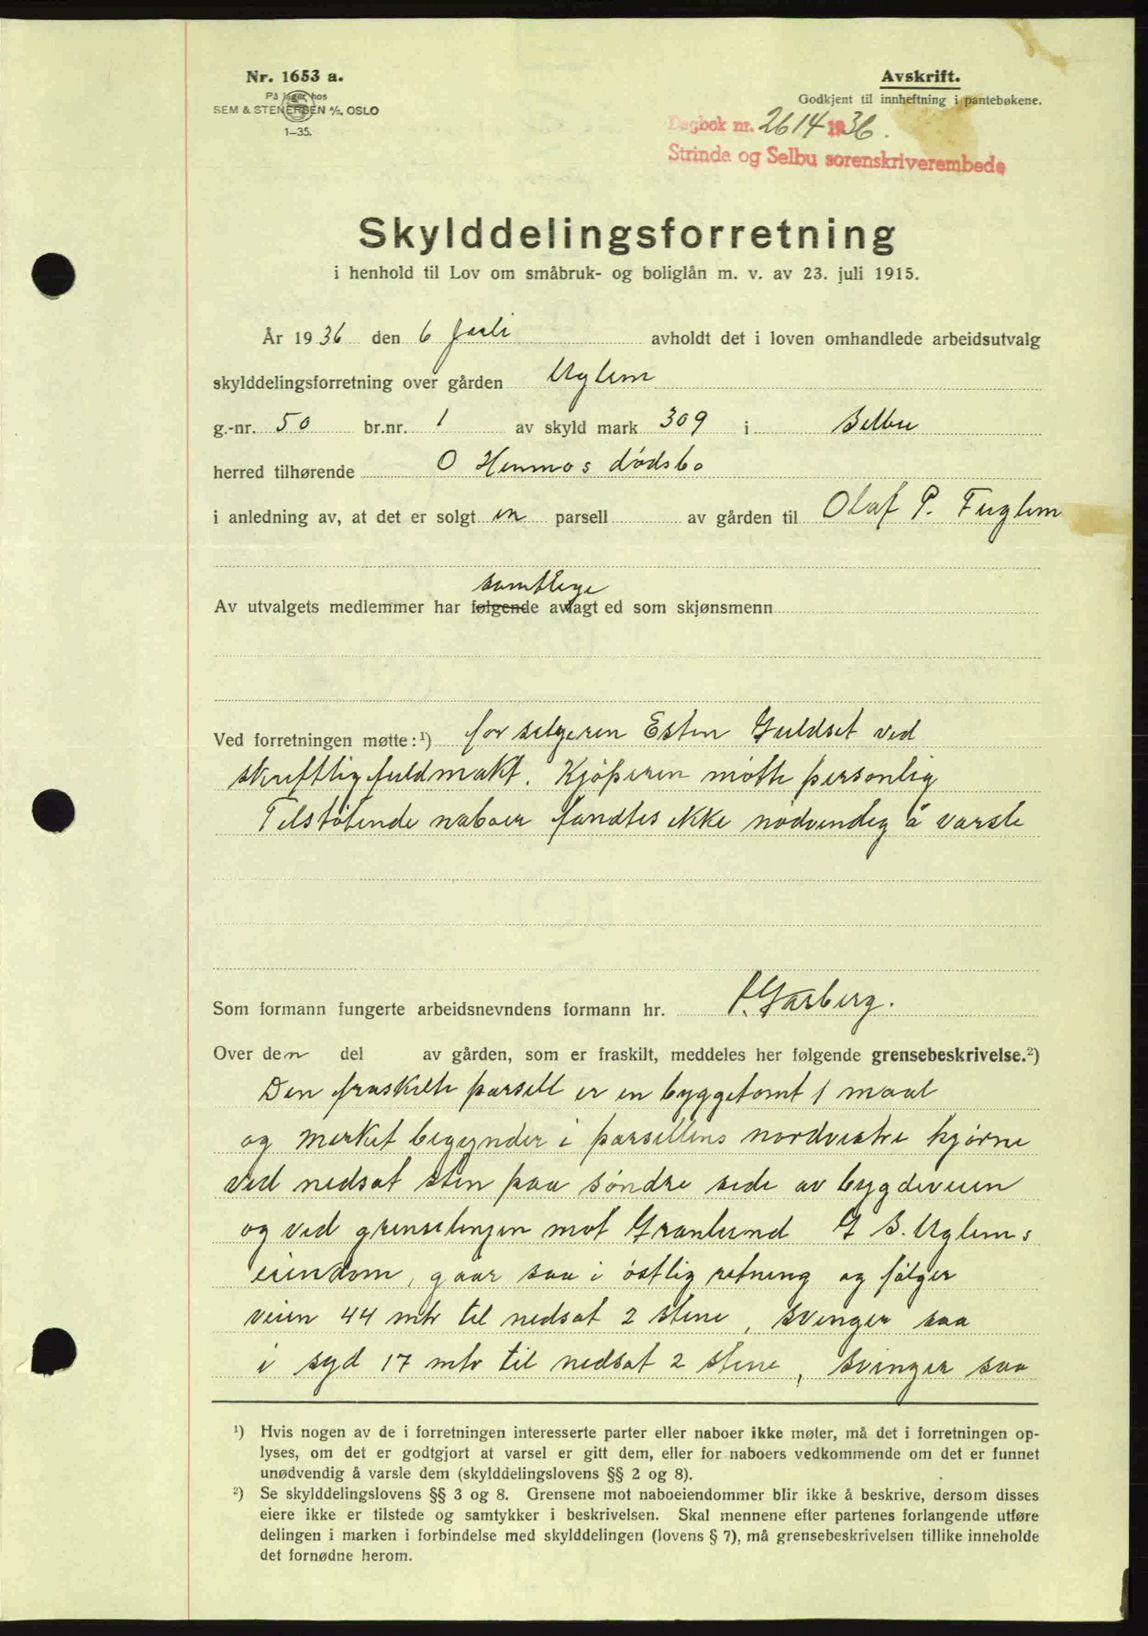 Nr. 1653 a.
På lager hos
SEM & STENERSEN A/S. OSLO
1—35.
Avskrift.
Godkjent til innheftning i pantebøkene.
Dagbok nr. 2614 1936.
Strinda og Selbu sorenskriverembede
Skylddelingsforretning
i henhold til Lov om småbruk- og boliglån m. v. av 23. juli 1915.
År 1936 den 6 Juli avholdt det i loven omhandlede arbeidsutvalg
skylddelingsforretning over gården Uglem
g.-nr. 50 br.nr. 1 av skyld mark 309 i Selbu
herred tilhørende O Hemmos dødsbo
i anledning av, at det er solgt en parsell av gården til Olaf P. Fuglem
samtlige
Av utvalgets medlemmer har følgende avlagt ed som skjønsmenn
Ved forretningen møtte: ¹) for selgeren Esten Guldset ved
skriftlig fuldmakt. Kjøperen møtte personlig
Tilstøtende naboer fandtes ikke nødvendig å varsle
Som formann fungerte arbeidsnevndens formann hr. P. Garberg.
Over den del av gården, som er fraskilt, meddeles her følgende grensebeskrivelse.²)
Den fraskilte parsell er en byggetomt 1 maal
og merket begynder i parsellens nordvestre hjørne
ved nedsat sten paa søndre side av bygdeveien
og ved grenselinjen mot Granlund G S. Uglems
eiendom, gaar saa i østlig retning og følger
veien 44 mtr til nedsat 2 stene, svinger saa
i syd 17 mtr til nedsat 2 stene, svinger saa
¹) Hvis nogen av de i forretningen interesserte parter eller naboer ikke møter, må det i forretningen op-
lyses, om det er godtgjort at varsel er gitt dem, eller for naboers vedkommende om det er funnet
unødvendig å varsle dem (skylddelingslovens §§ 2 og 8).
²) Se skylddelingslovens §§ 3 og 8. Grensene mot naboeiendommer blir ikke å beskrive, dersom disses
eiere ikke er tilstede og samtykker i beskrivelsen. Skal mennene efter partenes forlangende utføre
delingen i marken i forbindelse med skylddelingen (lovens § 7), må grensebeskrivelsen tillike inneholde
det fornødne herom.